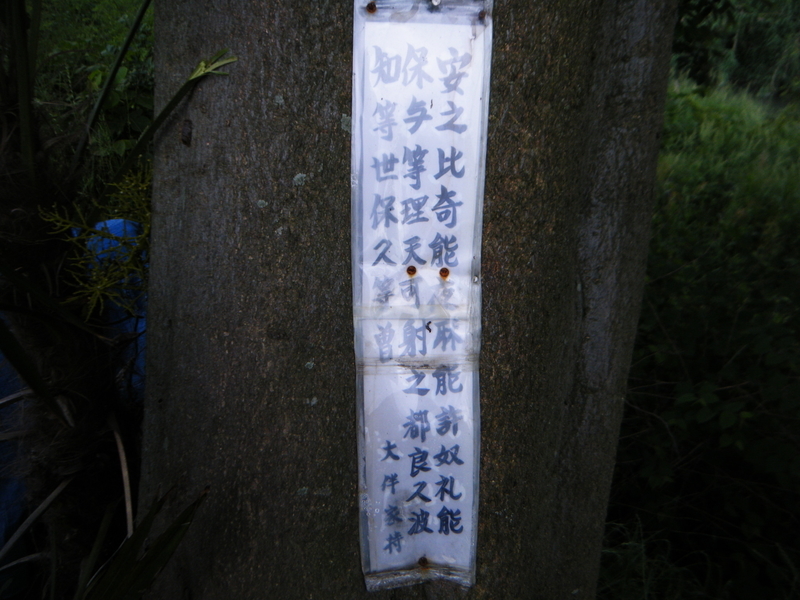 安之比奇能夜麻能許奴礼能
保与等理天可射之都良久波
知等世保久等曽
大伴家持